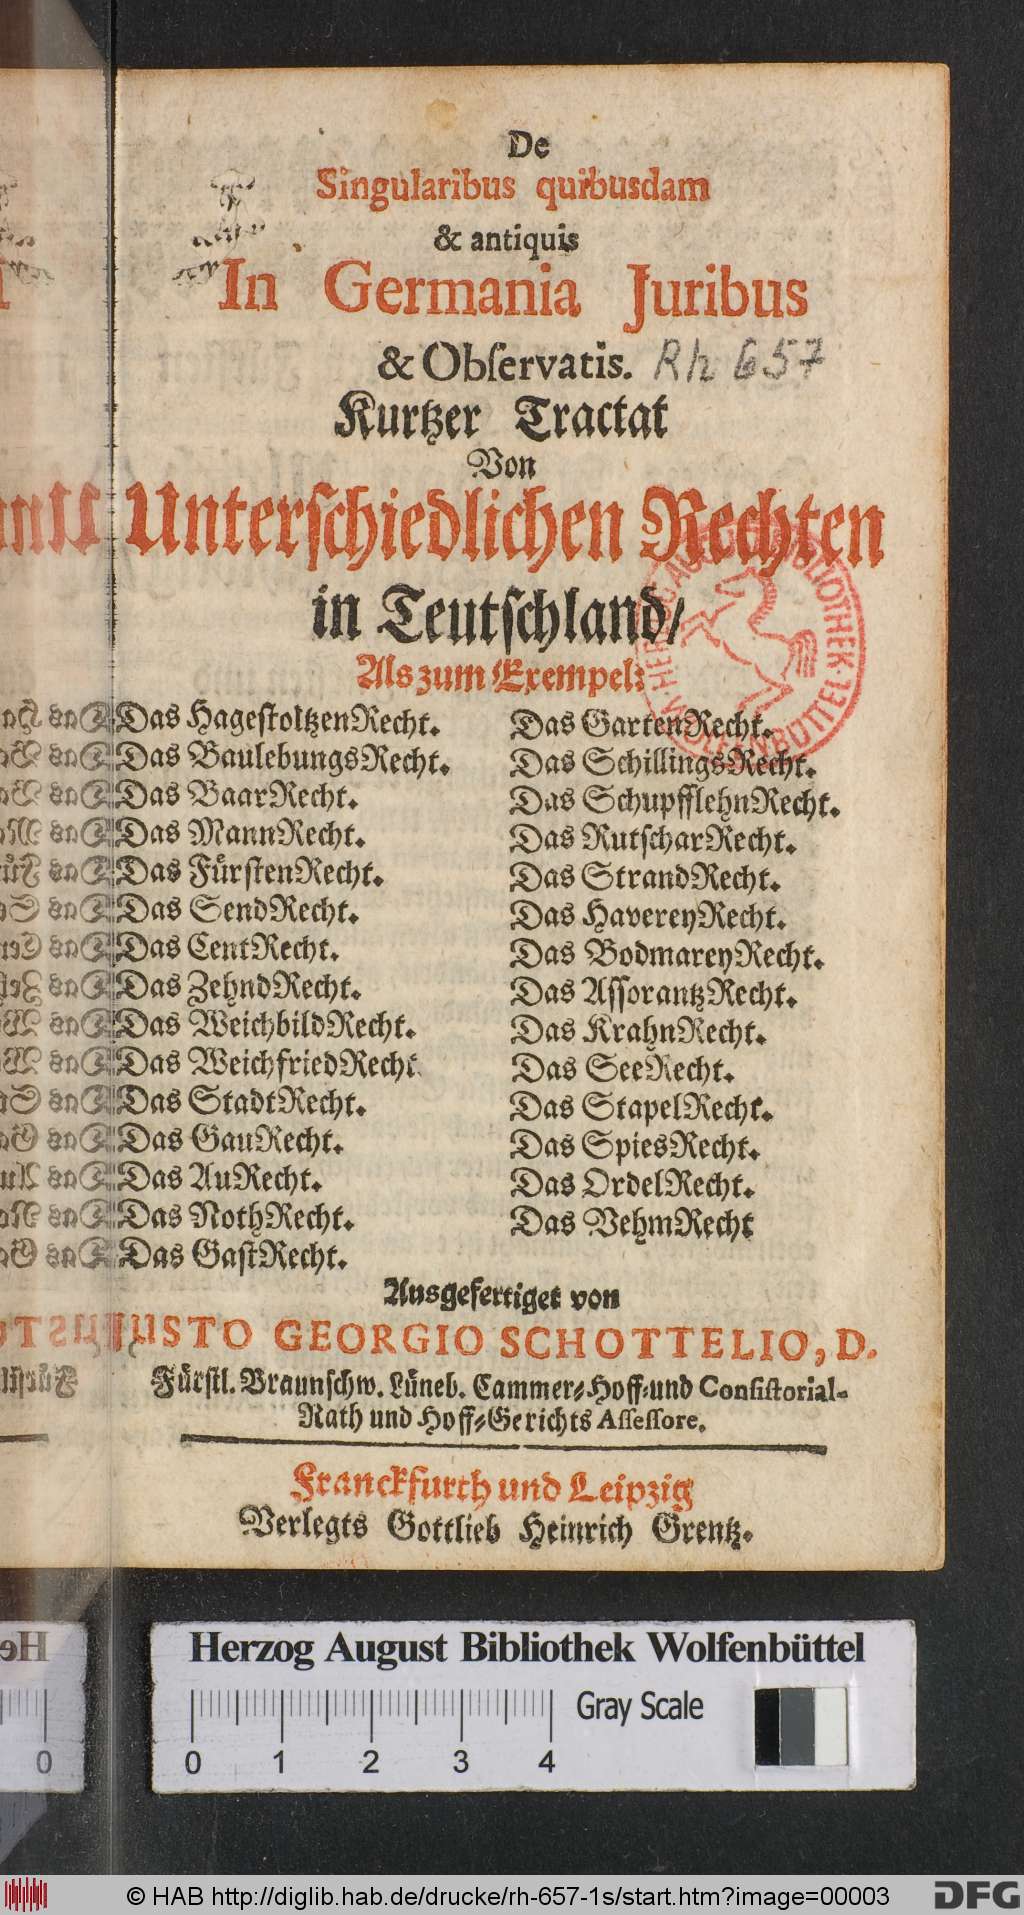 De
Singularibus quibusdam
& antiquis
In Germania Juribus
& Obſervatis. Rh 657
Kurtzer Tractat
Von
Unterſchiedlichen Rechten
in Teutſchland/
Als zum Exempel:
Das HageſtoltzenRecht.
Das BaulebungsRecht.
Das BaarRecht.
Das MannRecht.
Das FürſtenRecht.
Das SendRecht.
Das CentRecht.
Das ZehndRecht.
Das WeichbildRecht.
Das WeichfriedRecht
Das StadtRecht.
Das GauRecht.
Das AuRecht.
Das NothRecht.
Das GaſtRecht.
Das GartenRecht.
Das SchillingsRecht.
Das SchupfflehnRecht.
Das RutſcharRecht.
Das StrandRecht.
Das HavereyRecht.
Das BodmareyRecht.
Das AſſorantzRecht.
Das KrahnRecht.
Das SeeRecht.
Das StapelRecht.
Das SpiesRecht.
Das OrdelRecht.
Das VehmRecht
HERZOG AUGUST BIBLIOTHEK WOLFENBÜTTEL
Ausgefertiget von
JUSTO GEORGIO SCHOTTELIO, D.
Fürſtl. Braunſchw. Lüneb. Cammer-Hoff-und Conſiſtorial-
Rath und Hoff-Gerichts Aſſeſſore.
Franckfurth und Leipzig
Verlegts Gottlieb Heinrich Grentz.
Herzog August Bibliothek Wolfenbüttel
Gray Scale
0 1 2 3 4
© HAB http://diglib.hab.de/drucke/rh-657-1s/start.htm?image=00003
DFG